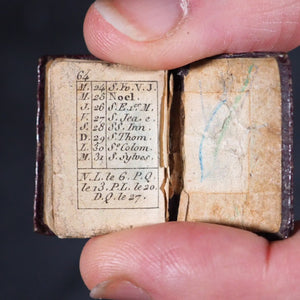 64
M. 24 S. Yv. V. J.
M. 25 Noel.
J. 26 S. E. 1er M.
V. 27 S. Jea. e.
S. 28 SS. Inn.
D. 29 S. Thom.
L. 30 Se Colom.
M. 31 S. Sylves.
N. L. le 6. P. Q.
le 13. P. L. le 20.
D. Q. le 27.